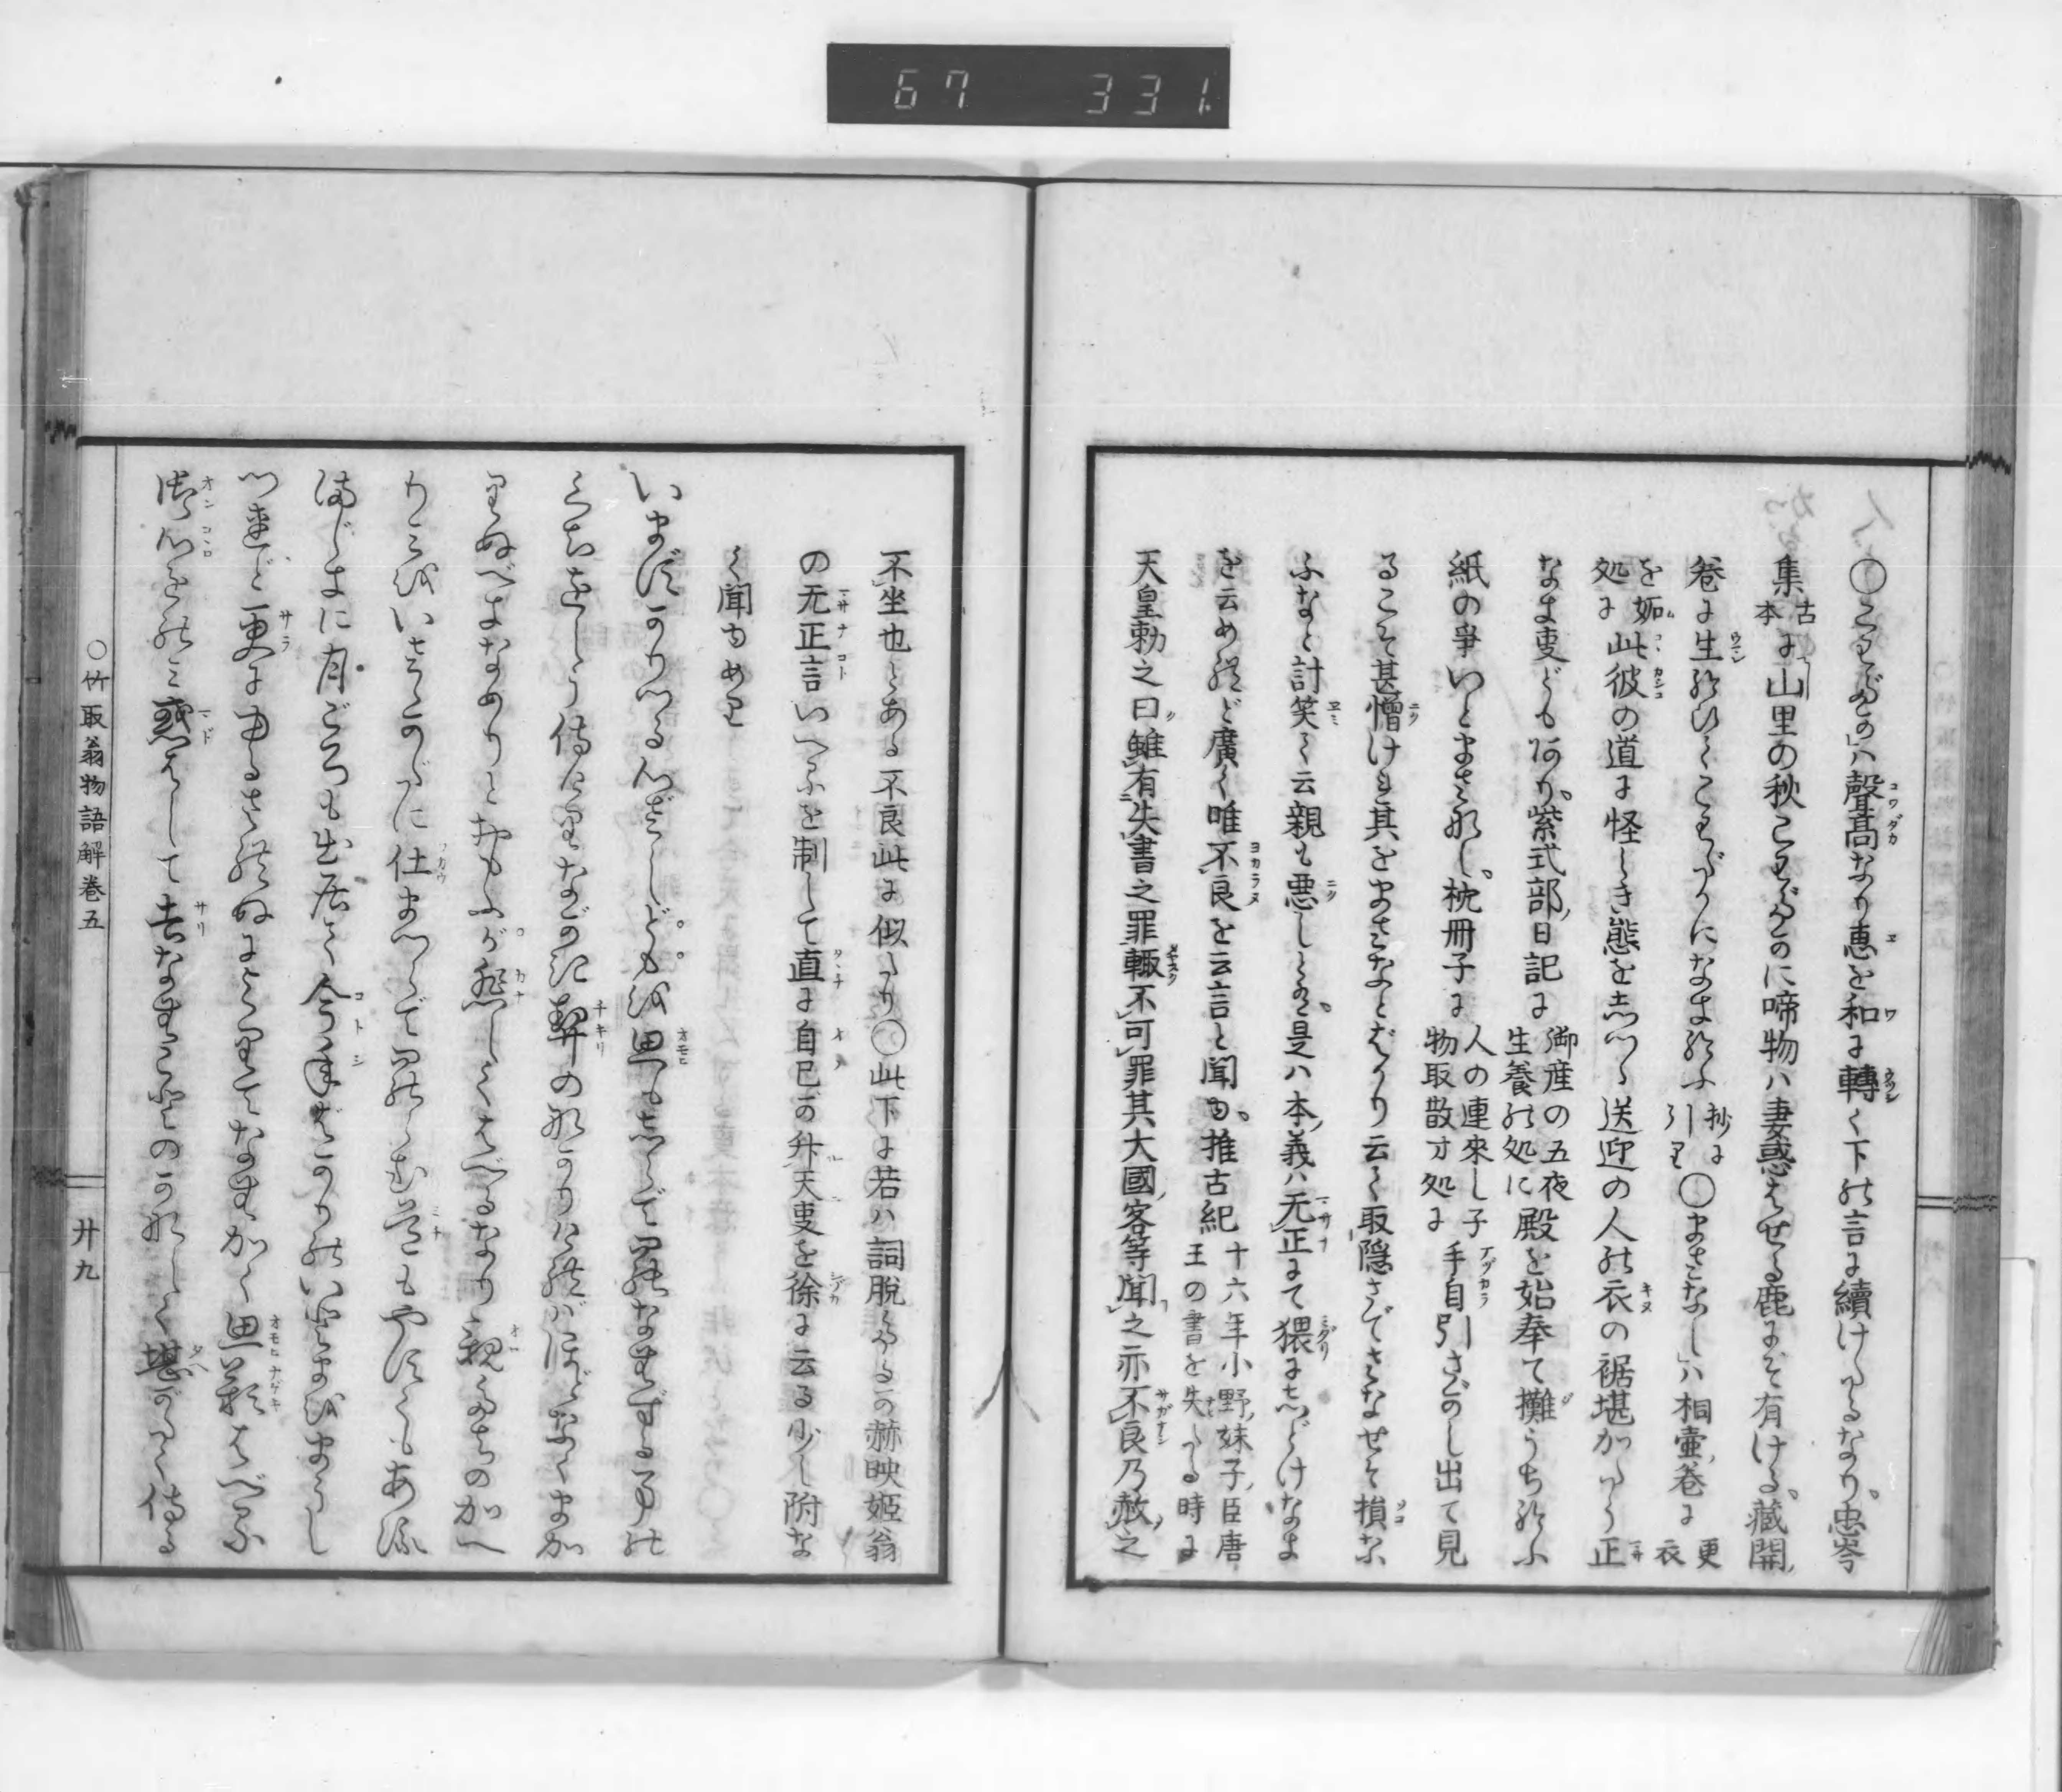 67 331
○こわだかハ聲高なり惠を和に轉く下の言に續けたるなり。忠岑
集古本に山里の秋こわだかに啼物ハ妻惑はせる鹿にぞ有ける。藏開
巻に生給ひてこわだかになき給ふ抄に引り○まさなしハ桐壷巻に更衣
を妬此彼の道に怪しき態を志つゝ送迎の人の衣の裾堪がたう正
なき事どもあり。紫式部日記に御産の五夜生養の処に殿を始奉て攤うち給ふ
紙の爭いとまさなし。枕冊子に人の連來し子物取散す処に手自引さがし出て見
るこそ甚憎けれ其をまさなとばかり云て取隠さでさなせそ損な
ふなと計笑て云親も悪しとあり。是ハ本義ハ无正にて猥に志どけなき
を云めれど廣く唯不良を云言と聞ゆ。推古紀十六年小野妹子臣唐王の書を失たる時に
天皇勅之曰雖有失書之罪輙不可罪其大國客等聞之亦不良乃赦之
不坐也とある不良此に似たり○此下に若ハ詞脱たるか赫映姫翁
の无正言いへふを制して直に自己が升天事を徐に云る少し附な
く聞ゆめり
いますかりつる心ざしどもを思も志らで罷なむずる事の
くちをしう侍けりながき契のなかりければほどなくまか
りぬべきなめりとおもふが悲しくはべるなり親たちのかへ
りみをいさゝかだに仕まつらで罷らむ道もやすくもあら
ましに月ごろも出居て今年ばかりのいとまをまうし
つれど更にゆるされぬによりてなむかく思歎はべる
御心をのみ惑はして去なむことのかなしく堪がたく侍る
○竹取翁物語解巻五
廿九